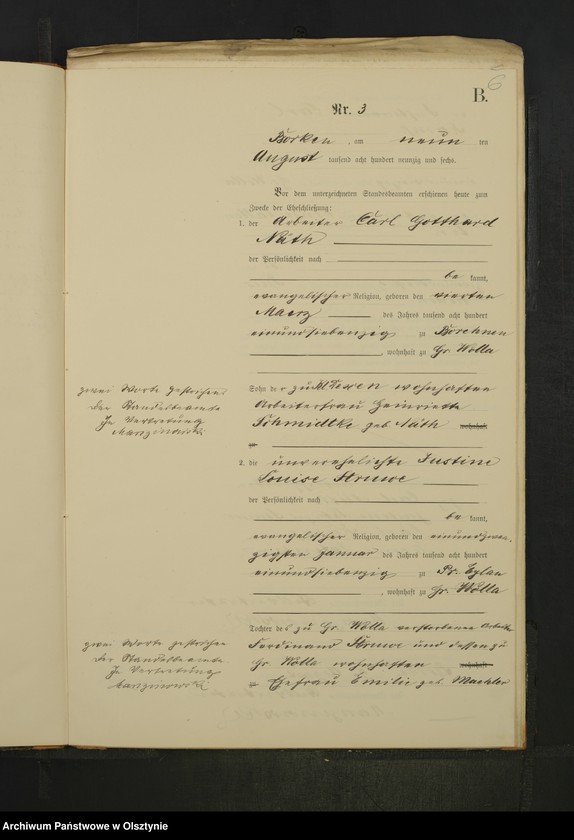 6
B.
Nr. 3
Borken, am neun ten
August tausend acht hundert neunzig und sechs.
Vor dem unterzeichneten Standesbeamten erschienen heute zum
Zwecke der Eheschließung:
1. der Arbeiter Carl Gotthard
Näth
der Persönlichkeit nach
be kannt,
evangelischer Religion, geboren den vierten
Maerz des Jahres tausend acht hundert
einundsiebenzig zu Borchnen
, wohnhaft zu Gr. Wolla
Sohn der zu wohnhaften
Arbeiterfrau Heinriette
Schmidtke geb. Näth wohnhaft
zu
2. die unverehelichte Justine
Louise Struwe
der Persönlichkeit nach
be kannt,
evangelischer Religion, geboren den einundzwan-
zigsten Januar des Jahres tausend acht hundert
einundsiebenzig zu Pr. Eylau
, wohnhaft zu Gr. Wolla
Tochter des zu Gr. Wolla verstorbenen Arbeiter
Ferdinand Struwe und dessen zu
Gr. Wolla wohnhaften wohnhaft
zu Ehefrau Emilie geb. Maehler
zwei Worte gestrichen.
Der Standesbeamte
In Vertretung
zwei Worte gestrichen
Der Standesbeamte
In Vertretung
Archiwum Państwowe w Olsztynie